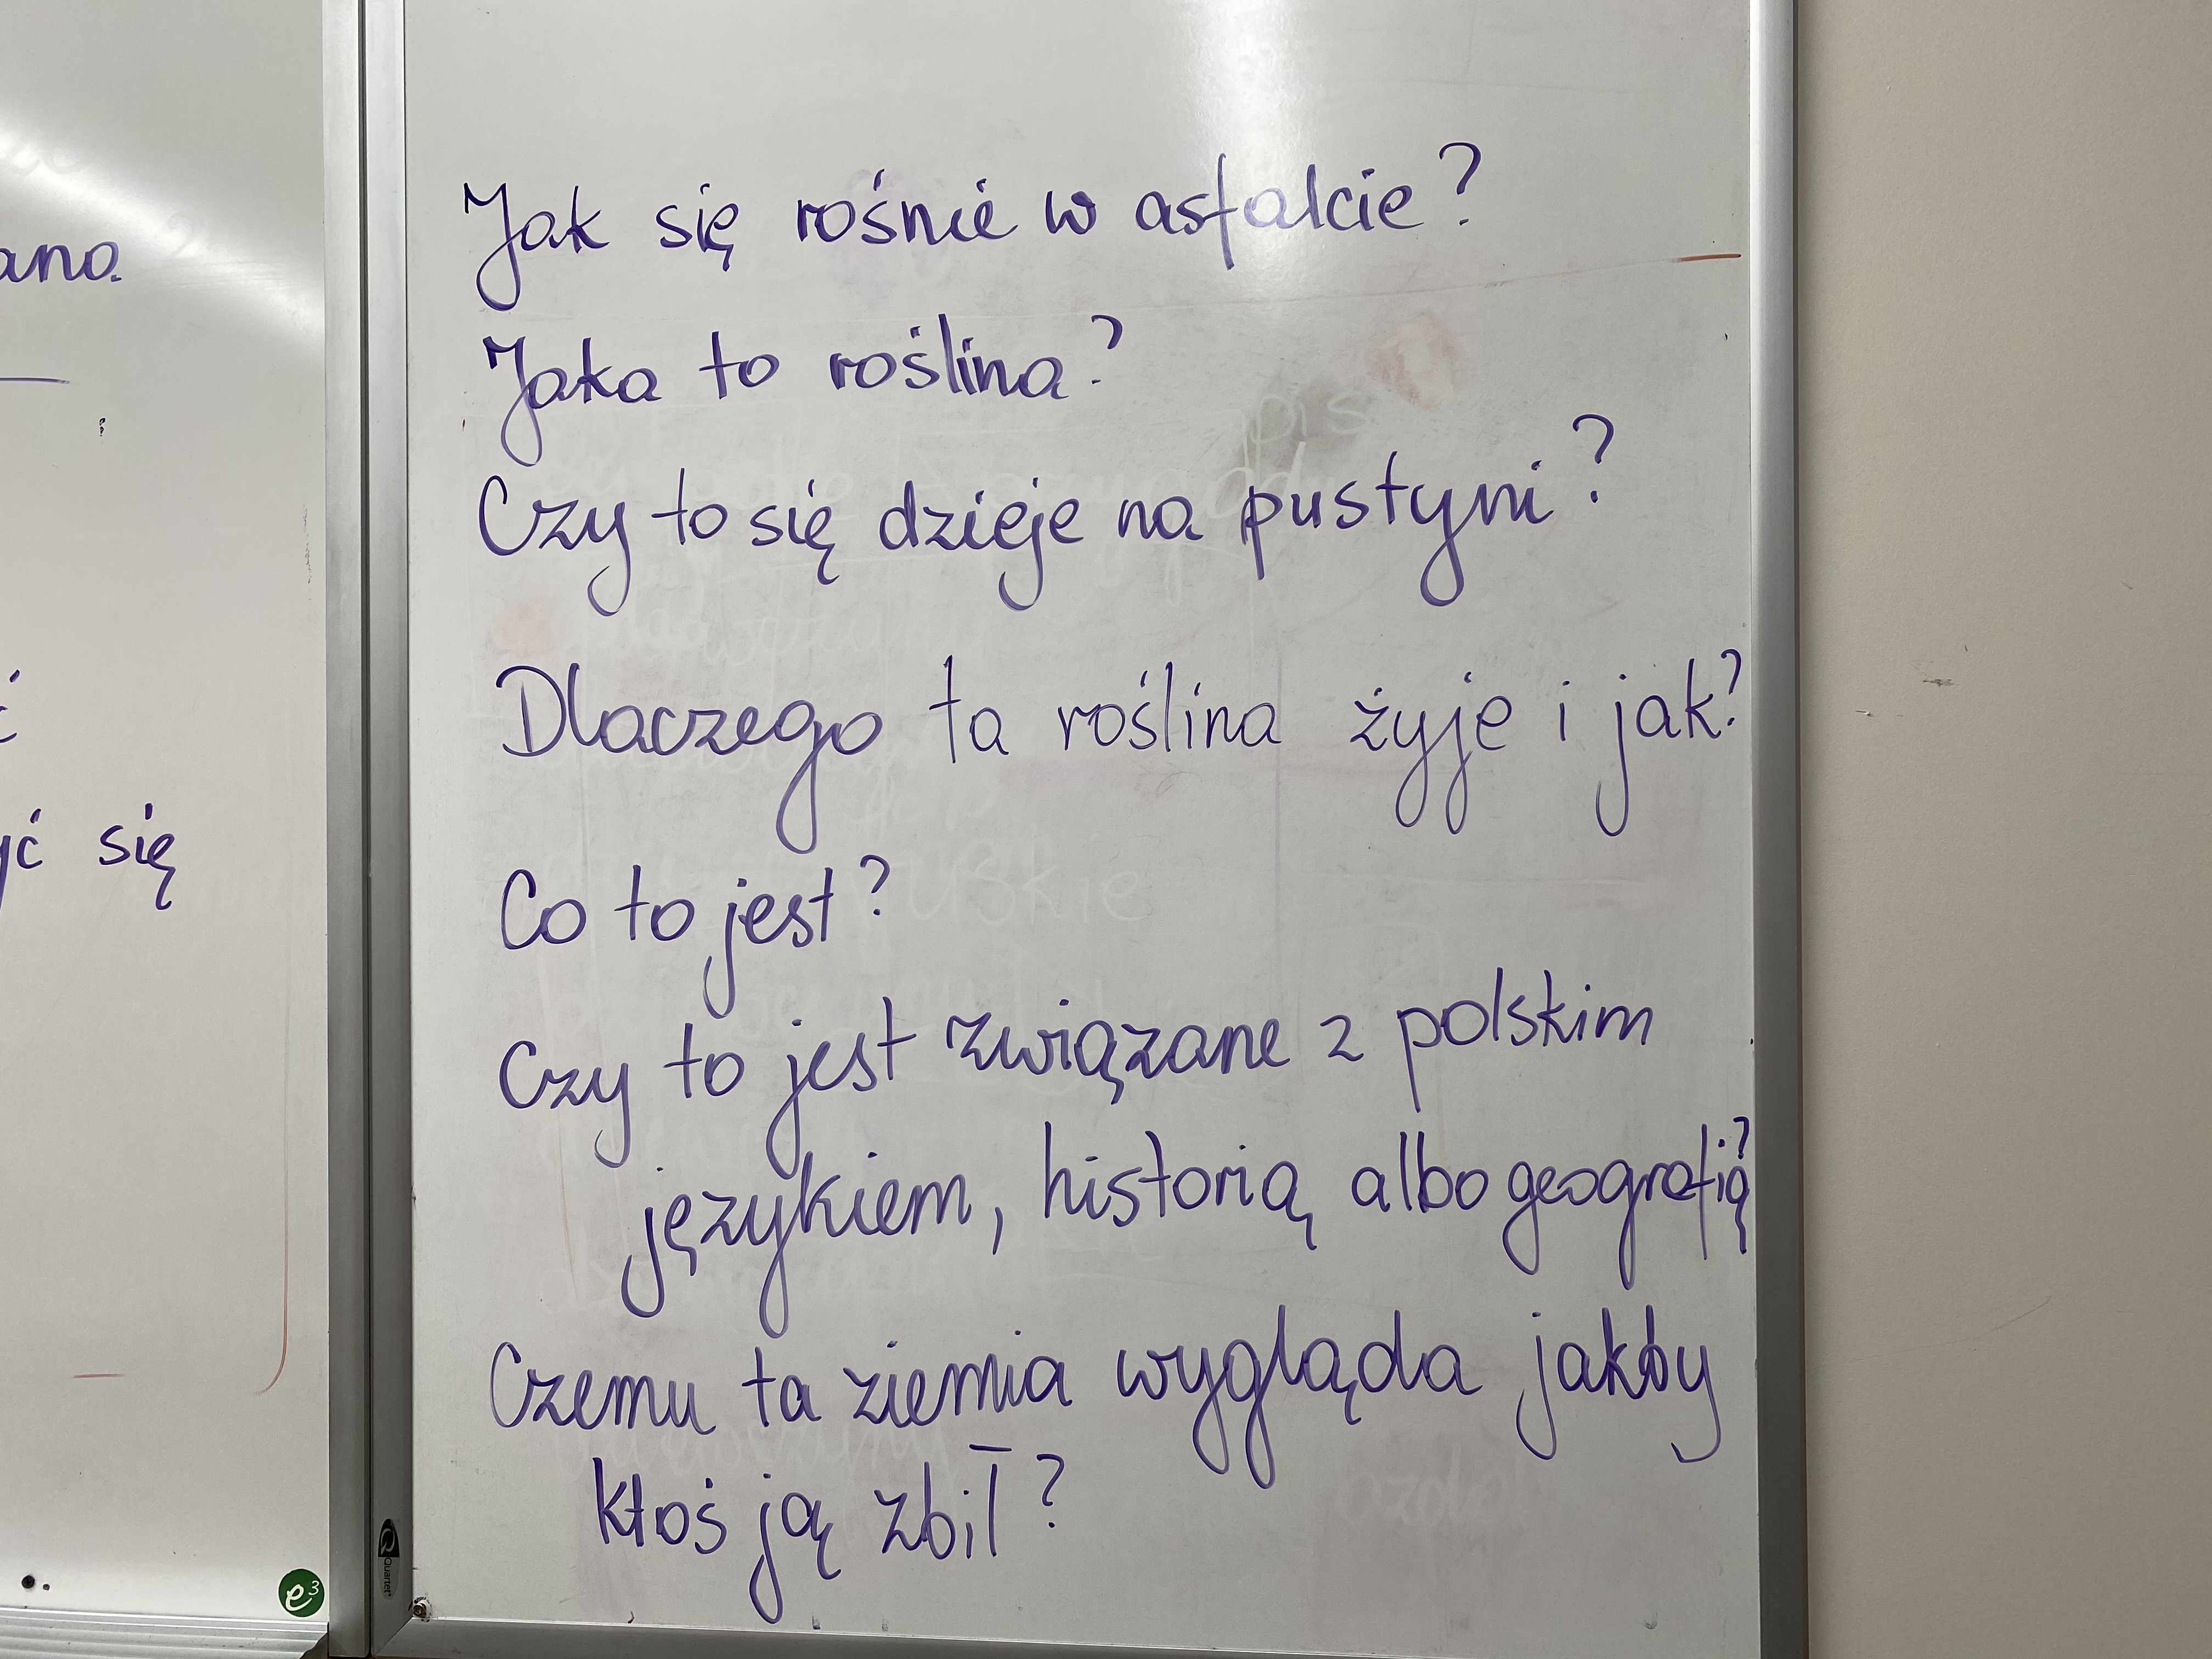 ano
yć się
Jak się rośnie w asfalcie?
Jaka to roślina?
Czy to się dzieje na pustyni?
Dlaczego ta roślina żyje i jak?
Co to jest?
Czy to jest związane z polskim
językiem, historią albo geografią?
Czemu ta ziemia wygląda jakby
ktoś ją zbił?
Quartet
e3